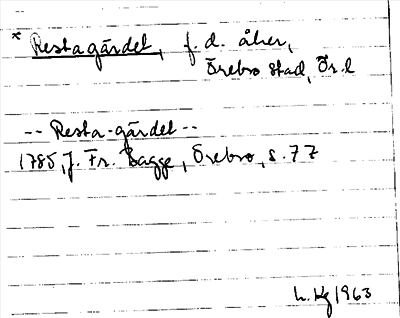 * Restagärdet, f. d. åker,
Örebro stad, Ör. l
-- Resta-gärdet --
1785, J. Fr. Bagge, Örebro, s. 77
L. Hg 1963